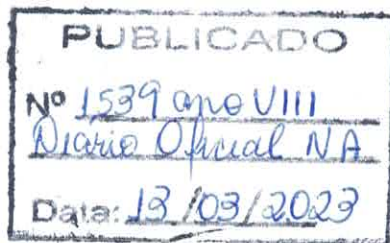 PUBLICADO
Nº 1539 ano VIII
Diário Oficial NA
Data: 13/03/2023